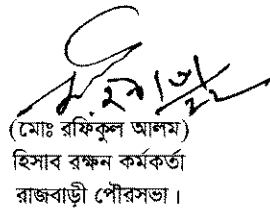 (মোঃ রফিকুল আলম)
হিসাব রক্ষন কর্মকর্তা
রাজবাড়ী পৌরসভা।